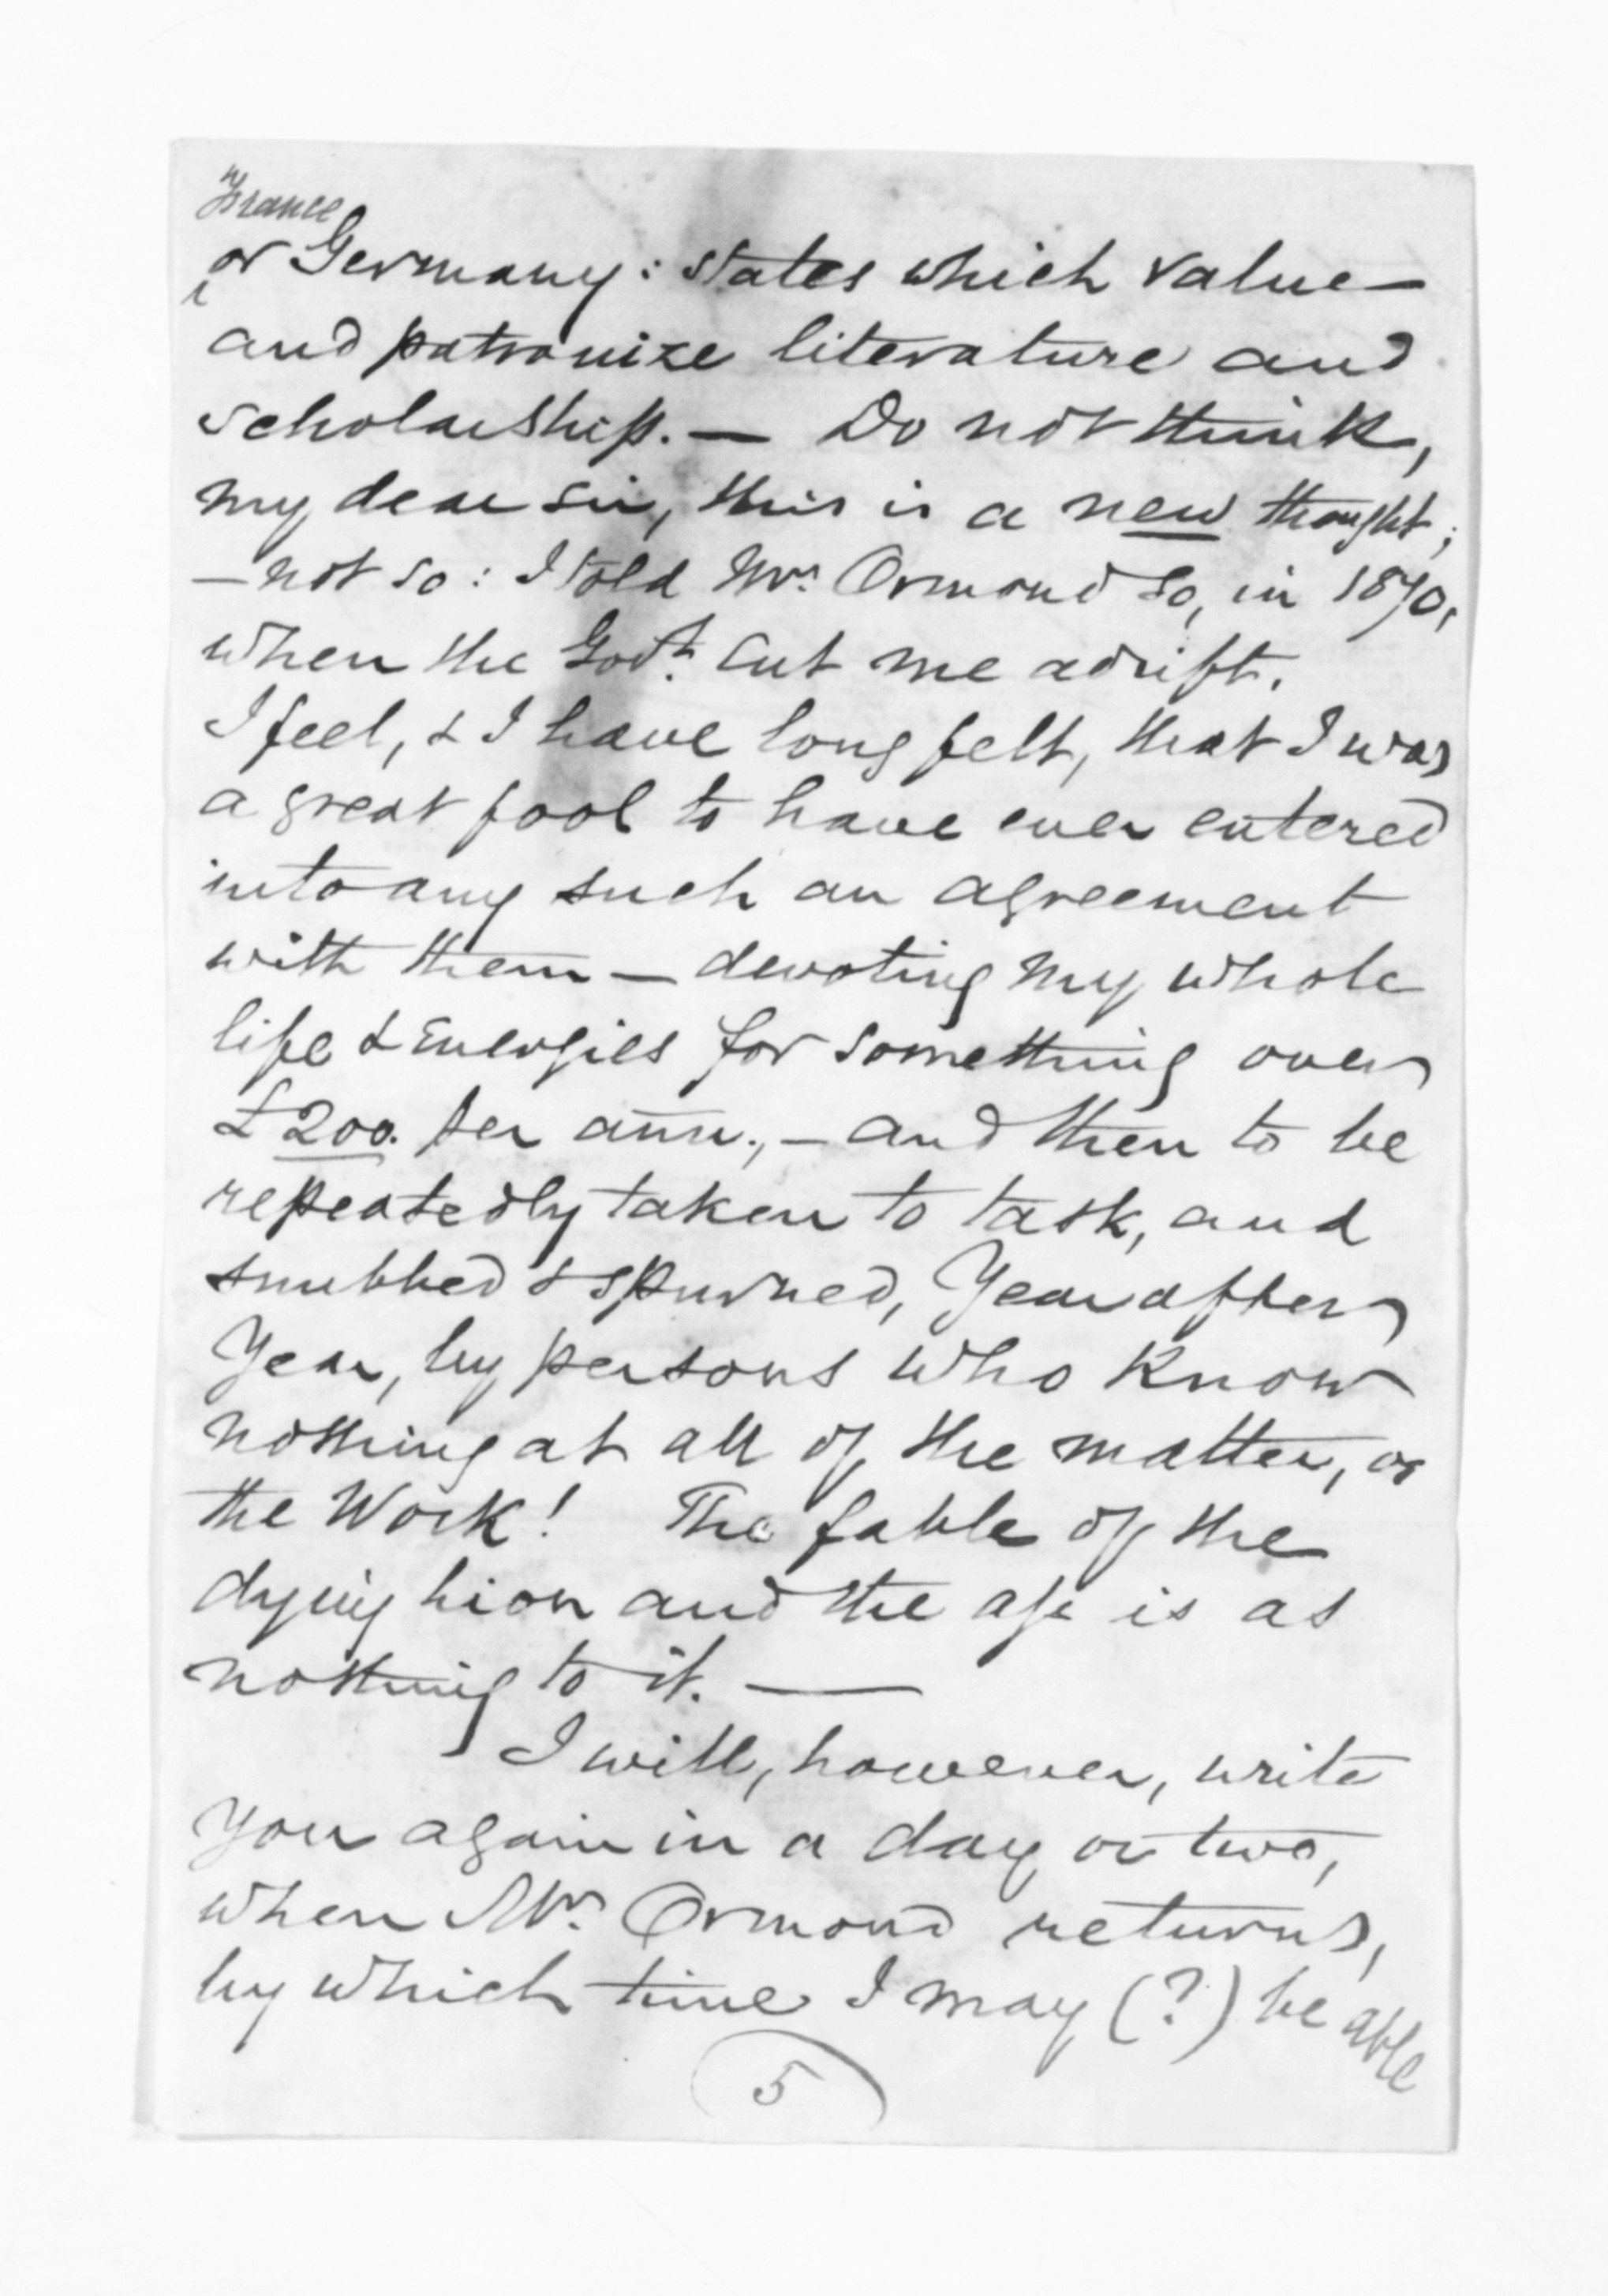 France
or Germany: states which value
and patronize literature and
scholarship. — Do not think,
my dear sir, this is a new thought;
— not so: I told Mr. Ormond so, in 1870,
when the Govt. cut me adrift.
I feel, & I have long felt, that I was
a great fool to have ever entered
into any such an agreement
with them — devoting my whole
life & energies for something over
£200. per ann., — and then to be
repeatedly taken to task, and
snubbed & spurned, Year after
Year, by persons who know
nothing at all of the matter, or
the Work! The fable of the
dying lion and the ass is as
nothing to it. —
I will, however, write
you again in a day or two,
when Mr. Ormond returns,
by which time I may (?) be able
5